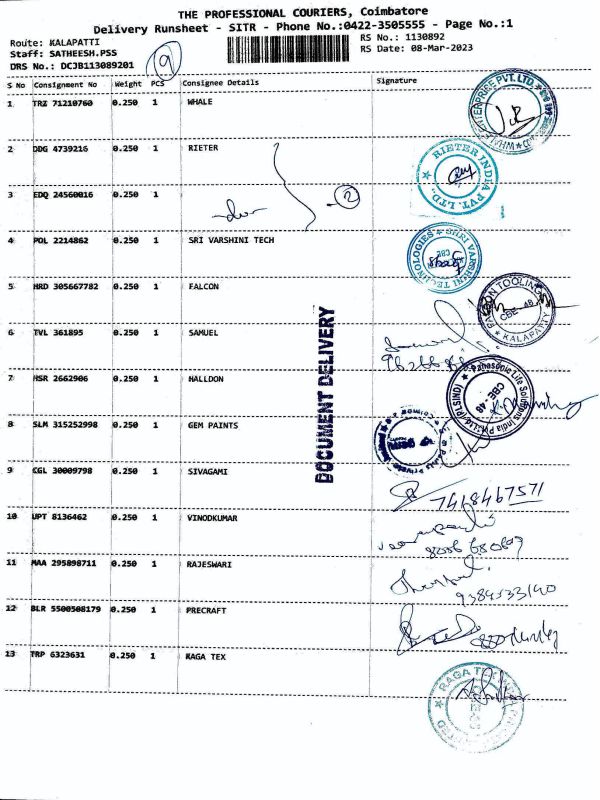 THE PROFESSIONAL COURIERS, Coimbatore
Delivery Runsheet - SITR - Phone No.:0422-3505555 - Page No.:1
Route: KALAPATTI
RS No.: 1130892
Staff: SATHEESH.PSS
RS Date: 08-Mar-2023
DRS No.: DCJB113089201
9
S No Consignment No Weight PCS Consignee Details Signature
1 TRZ 71210760 0.250 1 WHALE
2 DDG 4739216 0.250 1 RIETER
RIETER INDIA PVT. LTD.
3 EDQ 24560016 0.250 1
2
4 POL 2214862 0.250 1 SRI VARSHINI TECH
SHRI VARSHINI TECHNOLOGIES
5 HRD 305667782 0.250 1 FALCON
FALCON TOOLINGS
CBE - 48
KALAPATTY
DOCUMENT DELIVERY
6 TVL 361895 0.250 1 SAMUEL
7 HSR 2662906 0.250 1 HALLDON
Panasonic Life Solutions India Pvt. Ltd (PLSIND)
CBE - 48
8 SLM 315252998 0.250 1 GEM PAINTS
9 CGL 30009798 0.250 1 SIVAGAMI
7418467571
10 UPT 8136462 0.250 1 VINODKUMAR
11 MAA 295898711 0.250 1 RAJESWARI
12 BLR 5500508179 0.250 1 PRECRAFT
13 TRP 6323631 0.250 1 RAGA TEX